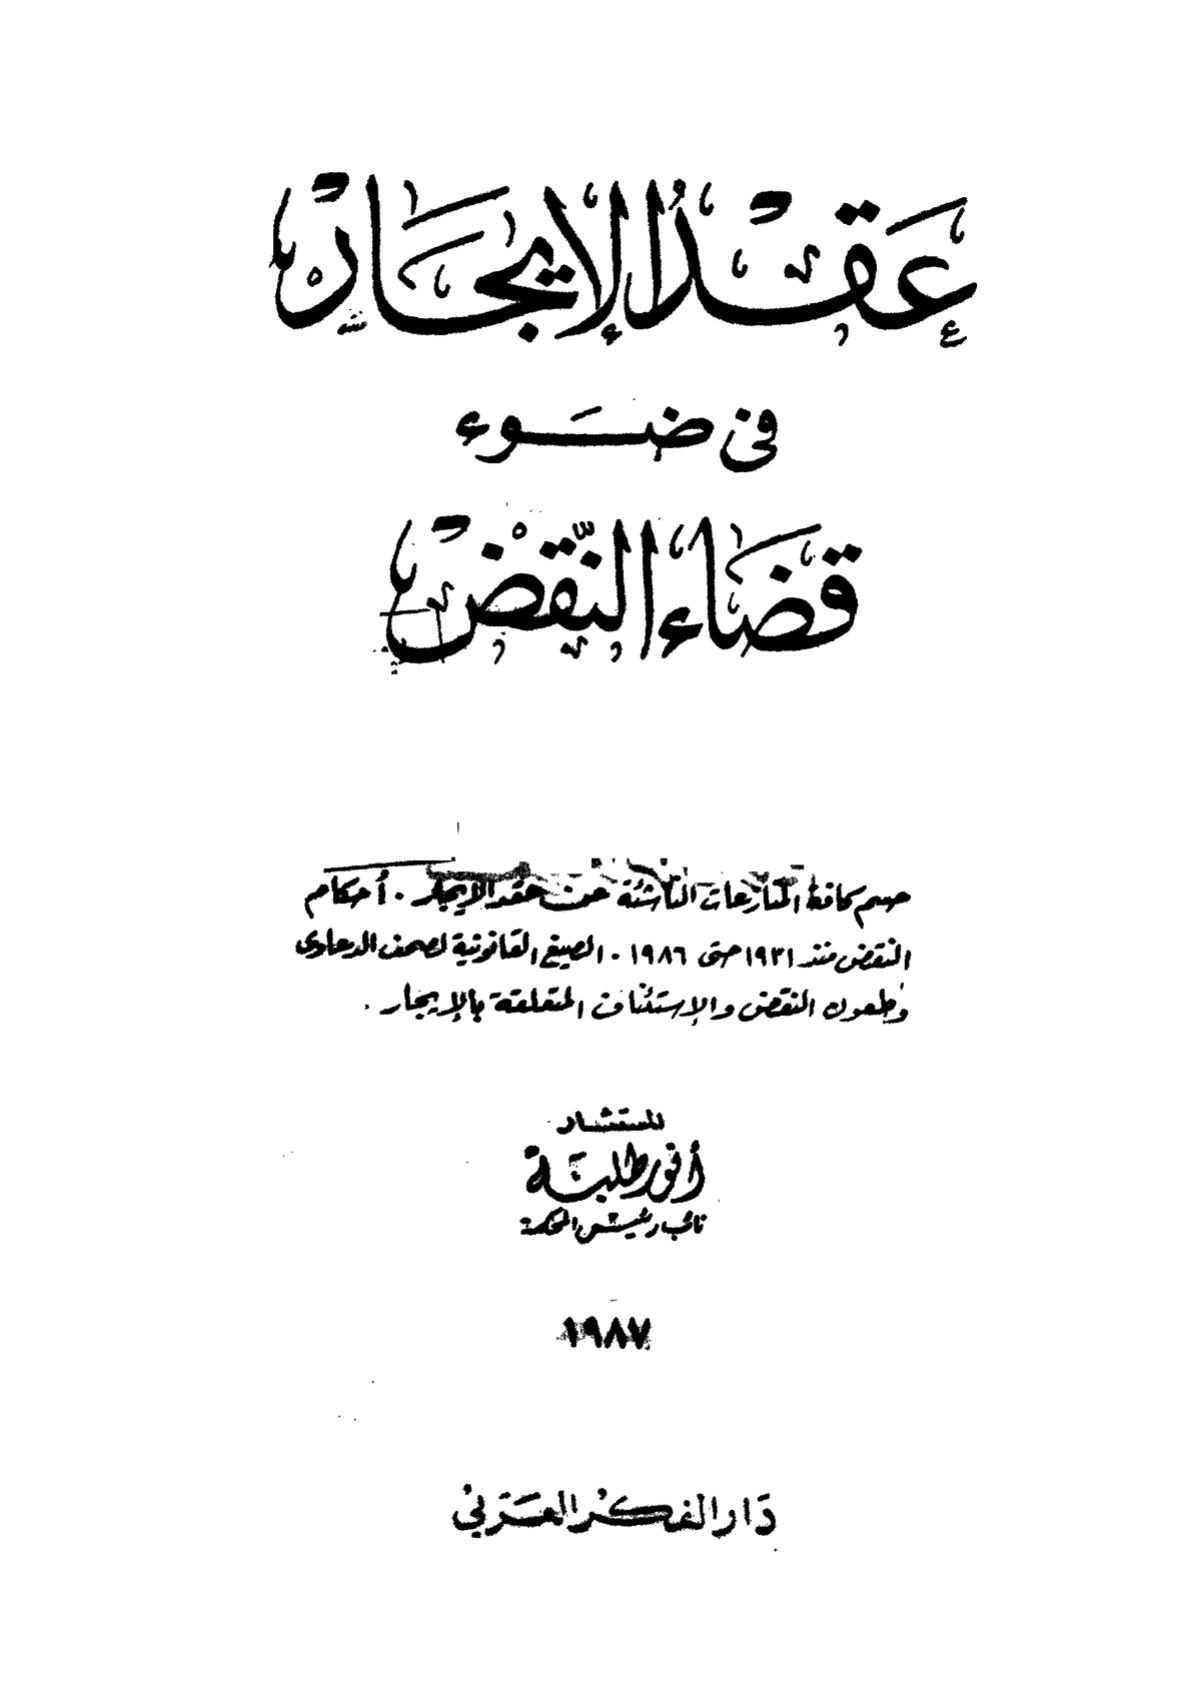 عقد الإيجار
فى ضوء
قضاء النقض
حسم كافة المنازعات الناشئة عن عقد الإيجار . أحكام
النقض منذ ١٩٣١ حتى ١٩٨٦ . الصيغ القانونية لصحف الدعاوى
وطعون النقض والإستئناف المتعلقة بالإيجار .
للمستشار
أنور طلبة
نائب رئيس المحكمة
١٩٨٧
دار الفكر العربي